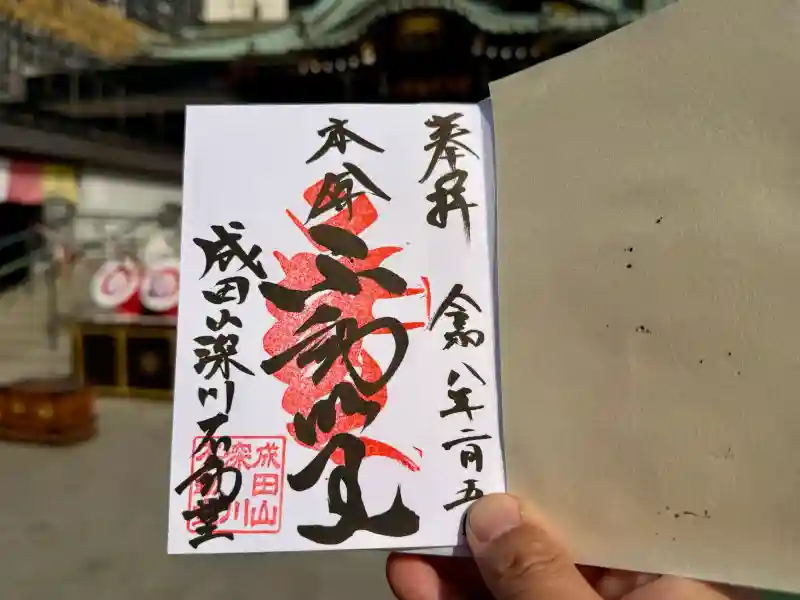 奉拝
令和八年二月五
本尊
不動明王
成田山深川不動堂
成田山
深川
不動堂